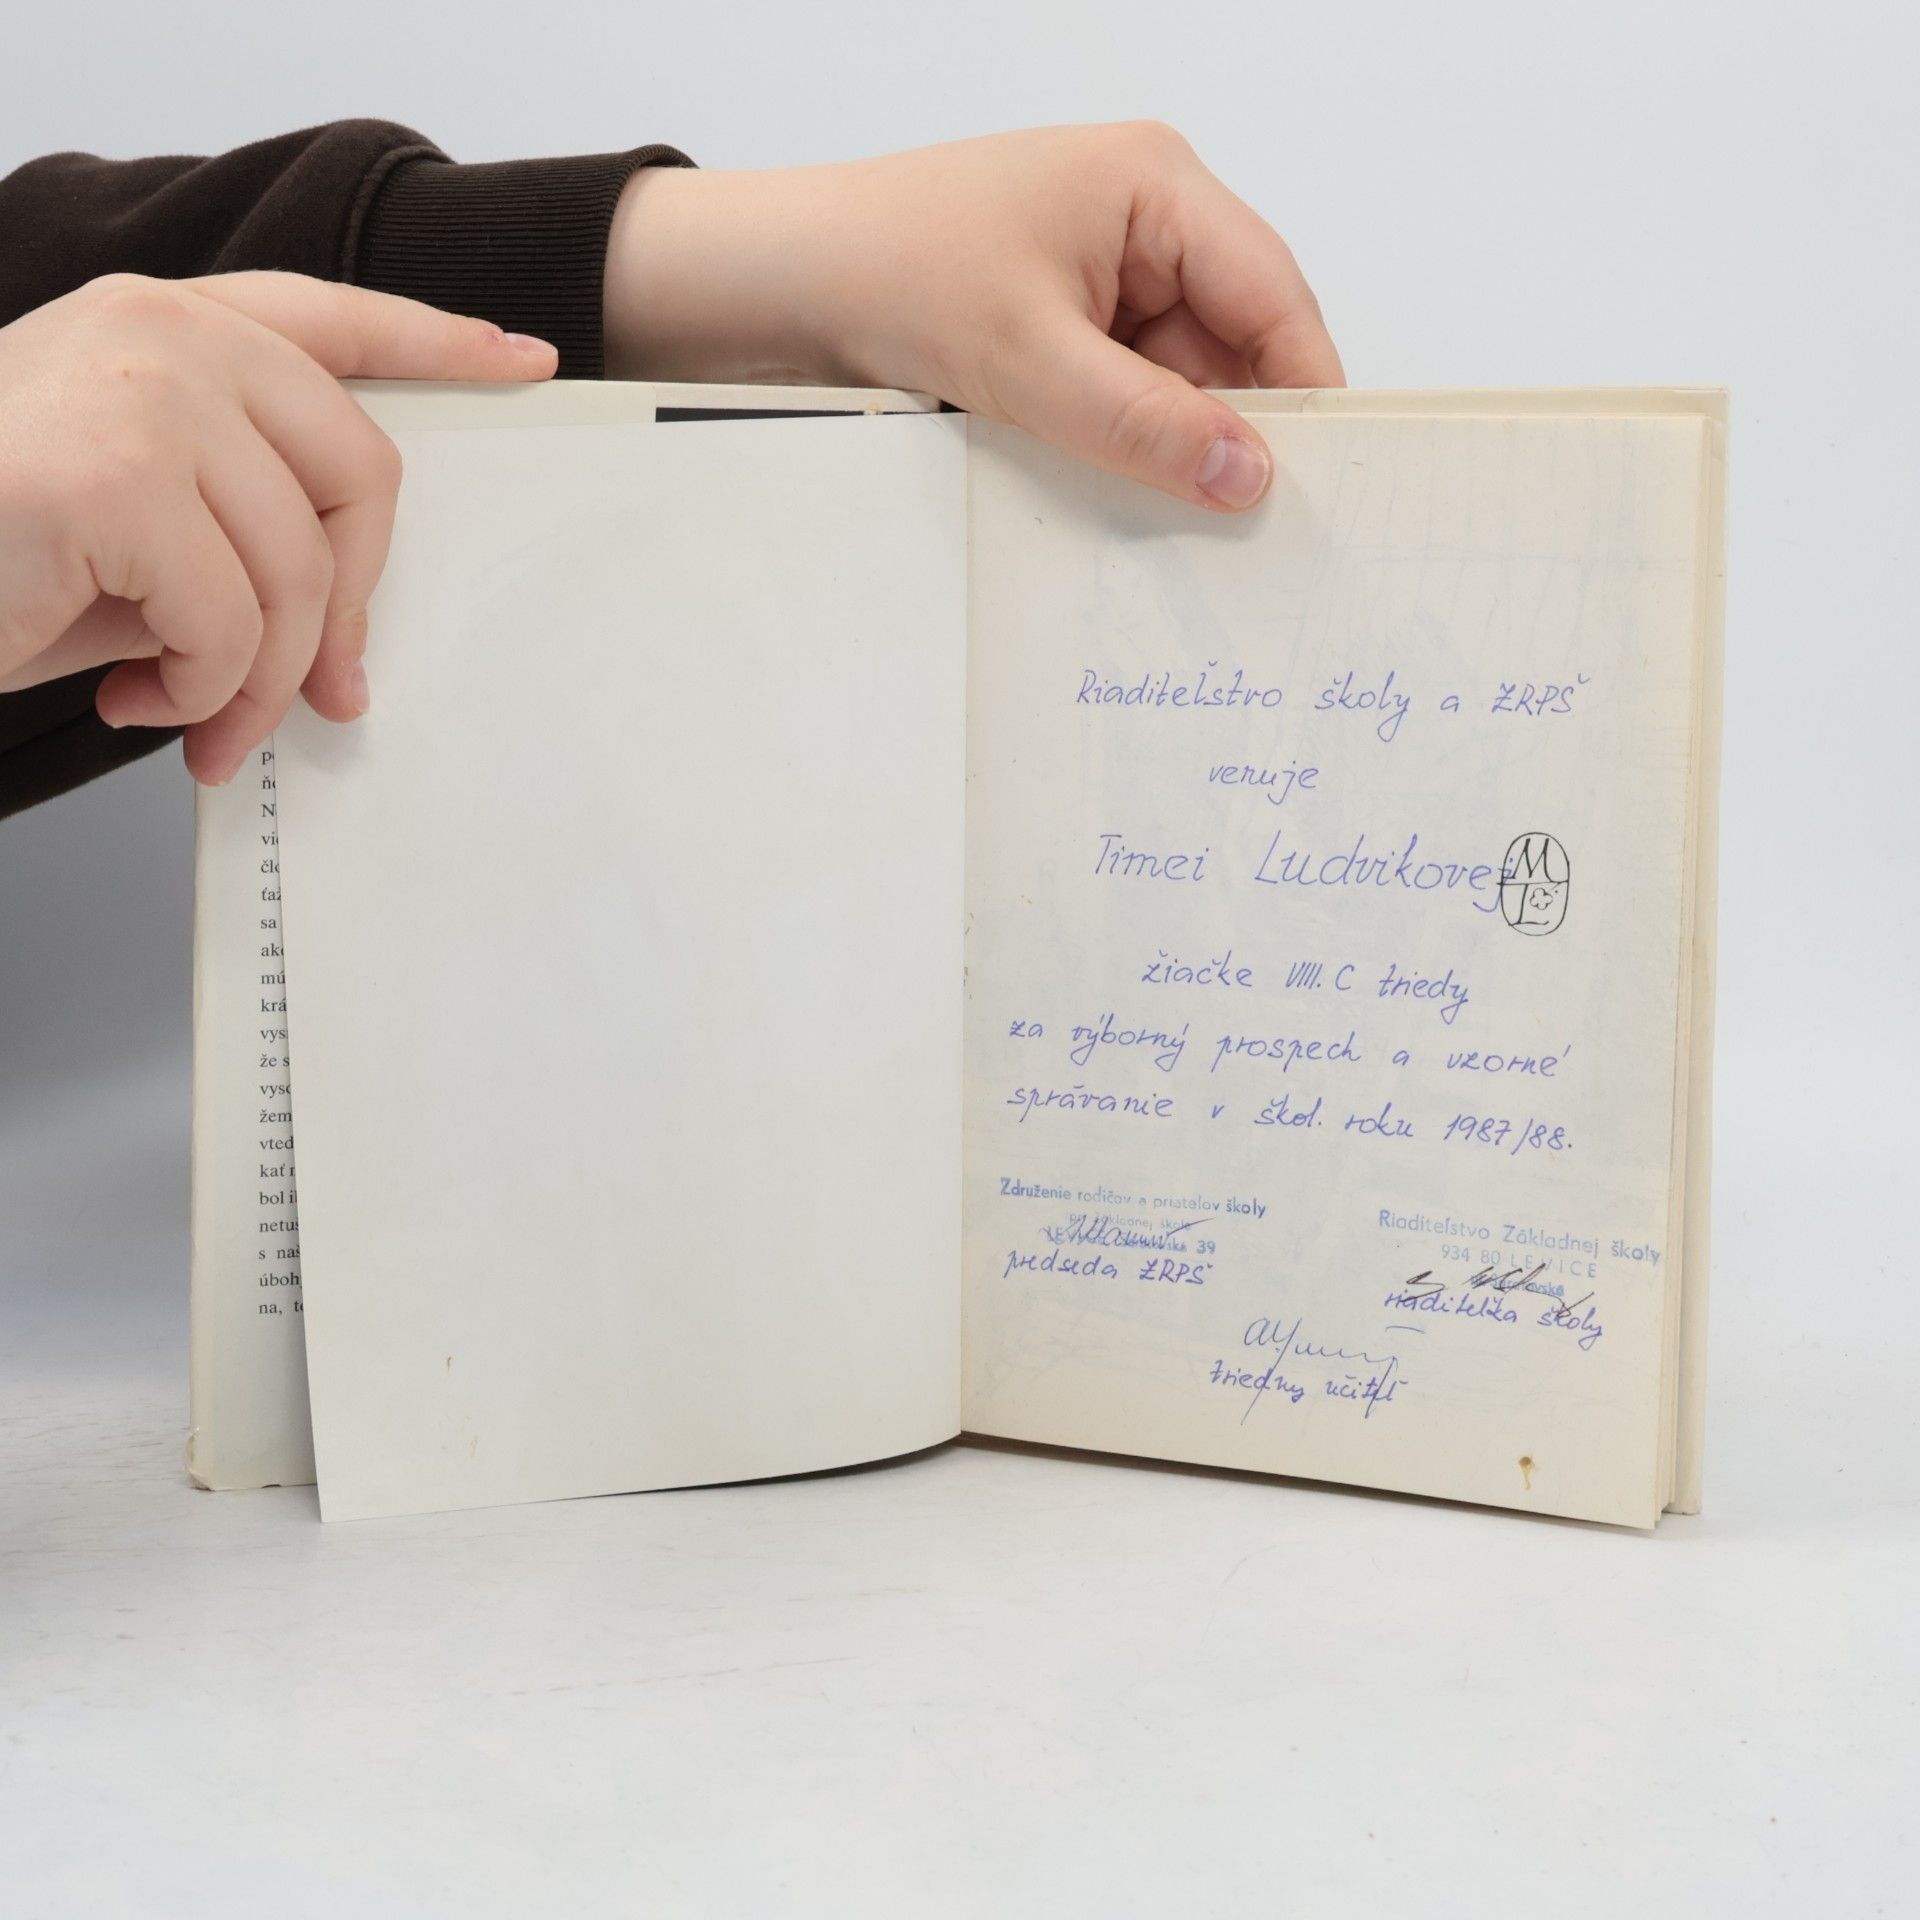 po
N
vi
sa
mú
krá
že s
žem
vted
kať
bol
s naš
na,
Riaditeľstvo školy a ZRPŠ
venuje
Timei Ludvikovej
M
L
žiačke VIII. C triedy
za výborný prospech a vzorné
správanie v škol. roku 1987/88.
Združenie rodičov a priateľov školy
pri Základnej škole
39
predseda ZRPŠ
Riaditeľstvo Základnej školy
934 80 LEVICE
riaditeľka školy
triedny učiteľ